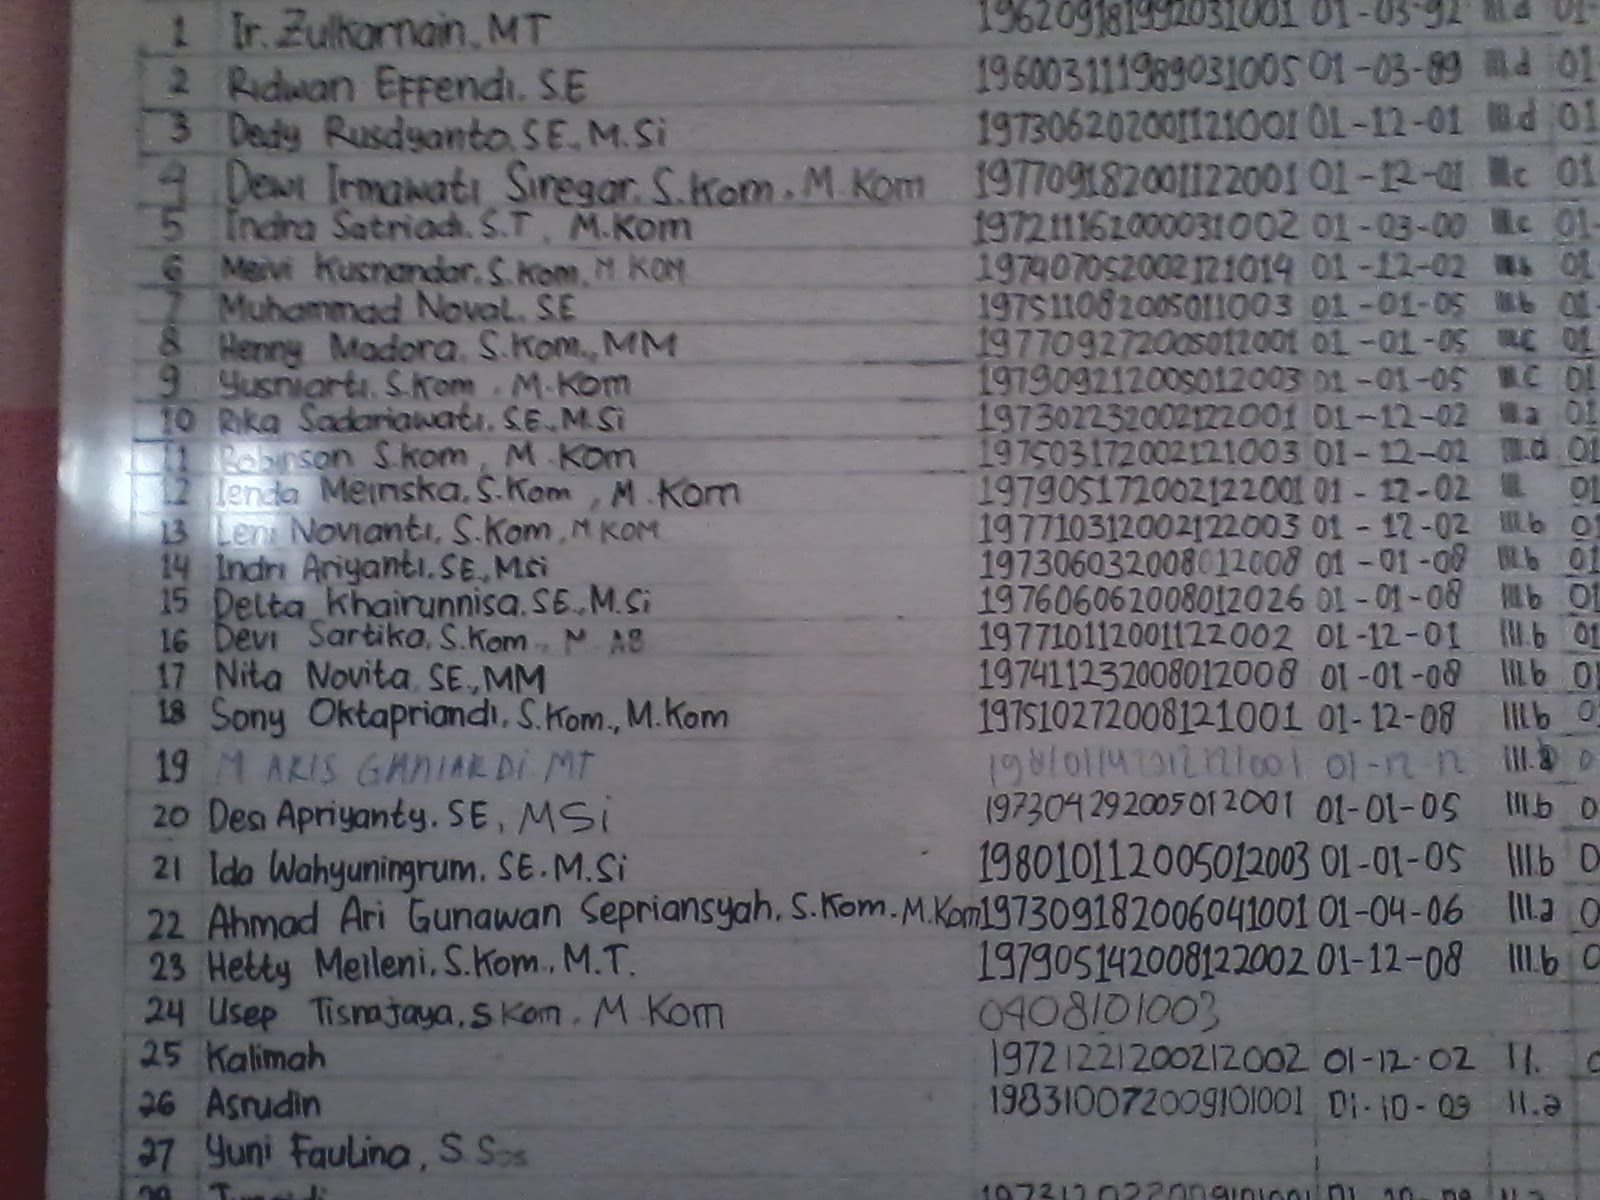 1 Ir. Zulkarnain, MT 196209181992031001 01-03-92 III.d 01-
2 Ridwan Effendi, SE 196003111989031005 01-03-89 III.d 01
3 Dedy Rusdyanto, SE., M.Si 197306202001121001 01-12-01 III.d 01
4 Dewi Irmawati Siregar, S.Kom., M.Kom 197709182001122001 01-12-01 III.c 01
5 Indra Satriadi, S.T, M.Kom 197211162000031002 01-03-00 III.c 01-
6 Meivi Kusnandar, S.Kom, M KOM 197407052002121014 01-12-02 01
7 Muhammad Noval, SE 197511082005011003 01-01-05 III.b 01-
8 Henny Madora, S.Kom., MM 197709272005012001 01-01-05 III.c 01
9 Yusniarti, S.Kom, M.Kom 197909212005012003 01-01-05 III.C 01
10 Rika Sadariawati, SE., M.Si 197302232002122001 01-12-02 III.a 01
11 Robinson S.Kom, M.Kom 197503172002121003 01-12-02 III.d 01
12 Ienda Meinska, S.Kom, M.Kom 197905172002122001 01-12-02 III 01
13 Leni Novianti, S.Kom, M KOM 197710312002122003 01-12-02 III.b 01
14 Indri Ariyanti, SE., MSi 197306032008012008 01-01-08 III.b 01
15 Delta Khairunnisa, SE., M.Si 197606062008012026 01-01-08 III.b 01
16 Devi Sartika, S.Kom., M AB 197710112001122002 01-12-01 III.b 01
17 Nita Novita, SE., MM 197411232008012008 01-01-08 III.b 0
18 Sony Oktapriandi, S.Kom., M.Kom 197510272008121001 01-12-08 III.b 0
19 M ARIS GANIARDI. MT 198101142012121001 01-12-12 0
20 Desi Apriyanty, SE, MSi 197304292005012001 01-01-05 III.b 0
21 Ida Wahyuningrum, SE. M.Si 198010112005012003 01-01-05 III.b 0
22 Ahmad Ari Gunawan Sepriansyah, S.Kom. M.Kom 197309182006041001 01-04-06 III.a 0
23 Hetty Meileni, S.Kom., M.T. 197905142008122002 01-12-08 III.b 0
24 Usep Tisnajaya, S Kom, M.Kom 0408101003
25 Kalimah 19721221200212002 01-12-02 II. 0
26 Asrudin 198310072009101001 01-10-09 II.a
27 Yuni Faulina, S Sos